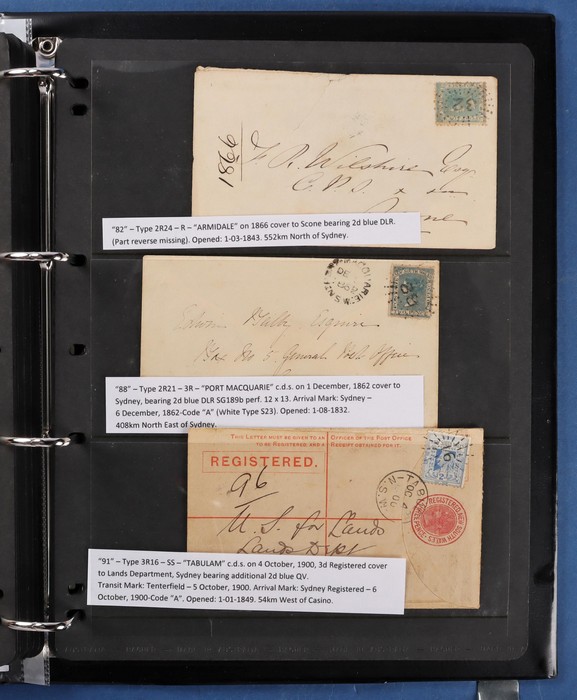 1866
F. R. Wilshire Esq
C.P.S.
"82" – Type 2R24 – R – "ARMIDALE" on 1866 cover to Scone bearing 2d blue DLR.
(Part reverse missing). Opened: 1-03-1843. 552km North of Sydney.
Edwin Esquire
General Post Office
"88" – Type 2R21 – 3R – "PORT MACQUARIE" c.d.s. on 1 December, 1862 cover to
Sydney, bearing 2d blue DLR SG189b perf. 12 x 13. Arrival Mark: Sydney –
6 December, 1862-Code "A" (White Type S23). Opened: 1-08-1832.
408km North East of Sydney.
THIS LETTER MUST BE GIVEN TO AN OFFICER OF THE POST OFFICE
TO BE REGISTERED AND A RECEIPT OBTAINED FOR IT.
REGISTERED.
96
U. S. for Lands
Lands Dept
"91" – Type 3R16 – SS – "TABULAM" c.d.s. on 4 October, 1900, 3d Registered cover
to Lands Department, Sydney bearing additional 2d blue QV.
Transit Mark: Tenterfield – 5 October, 1900. Arrival Mark: Sydney Registered – 6
October, 1900-Code "A". Opened: 1-01-1849. 54km West of Casino.